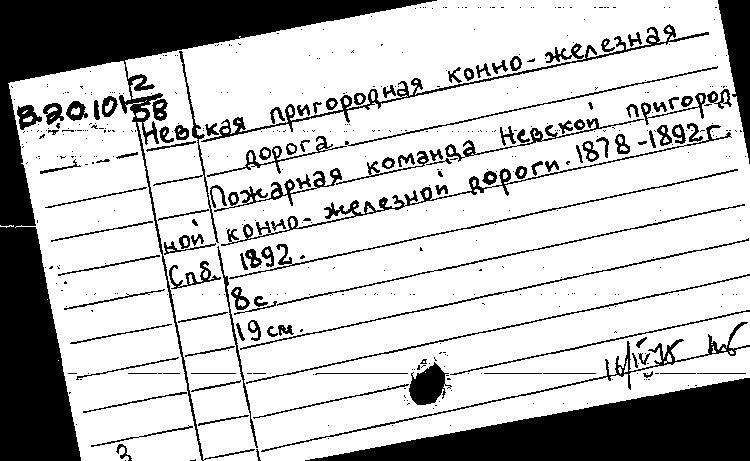 В.2.0.10 2/58
Невская пригородная конно-железная
дорога.
Пожарная команда Невской пригород-
ной конно-железной дороги. 1878-1892г.
Спб. 1892.
8с.
19см.
3